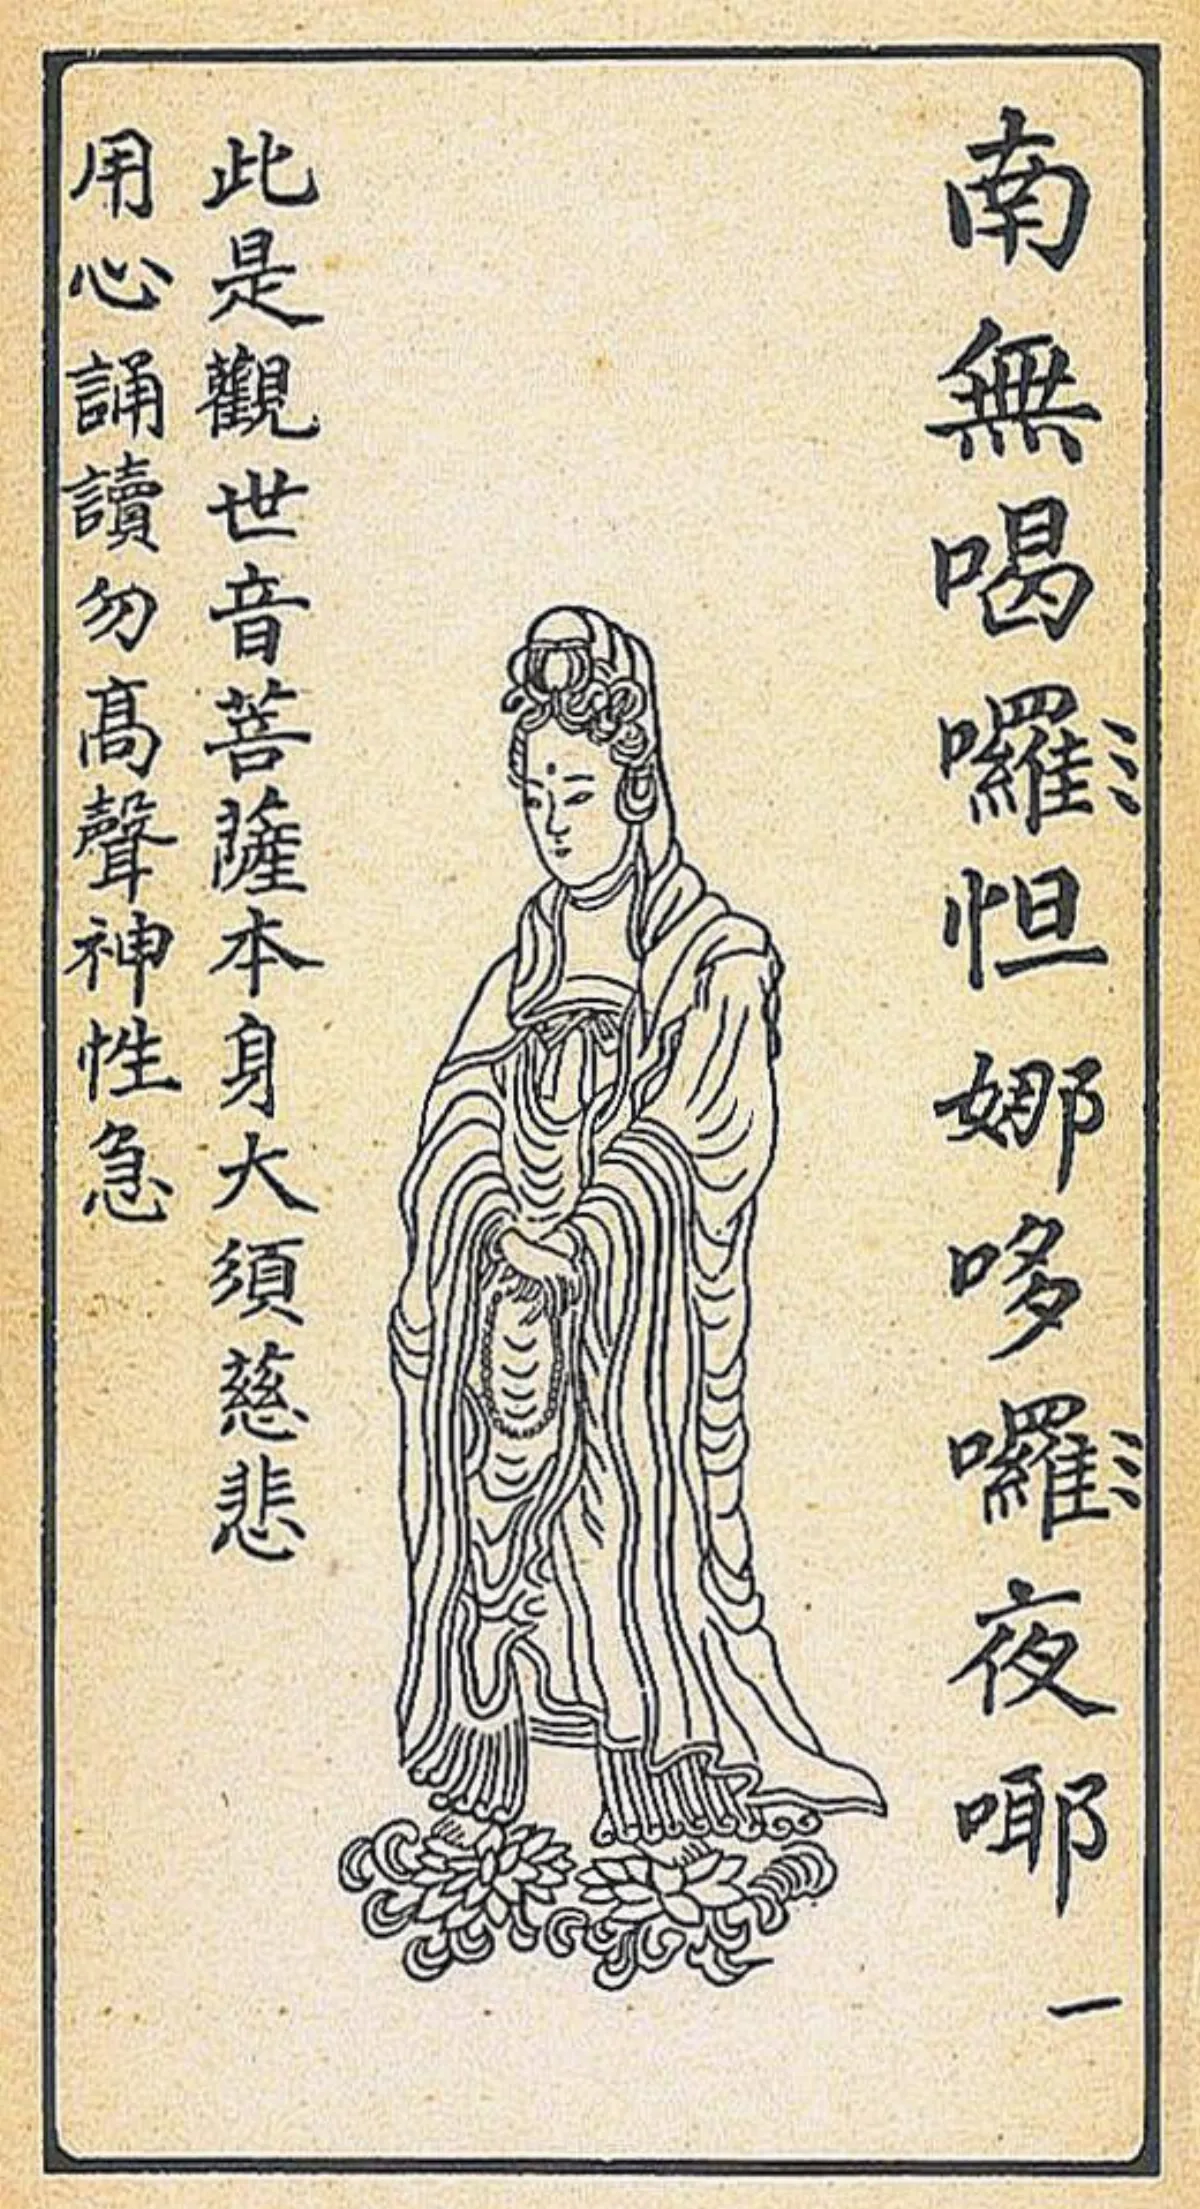 南無喝囉怛娜哆囉夜㖿 一
此是觀世音菩薩本身大須慈悲
用心誦讀勿高聲神性急